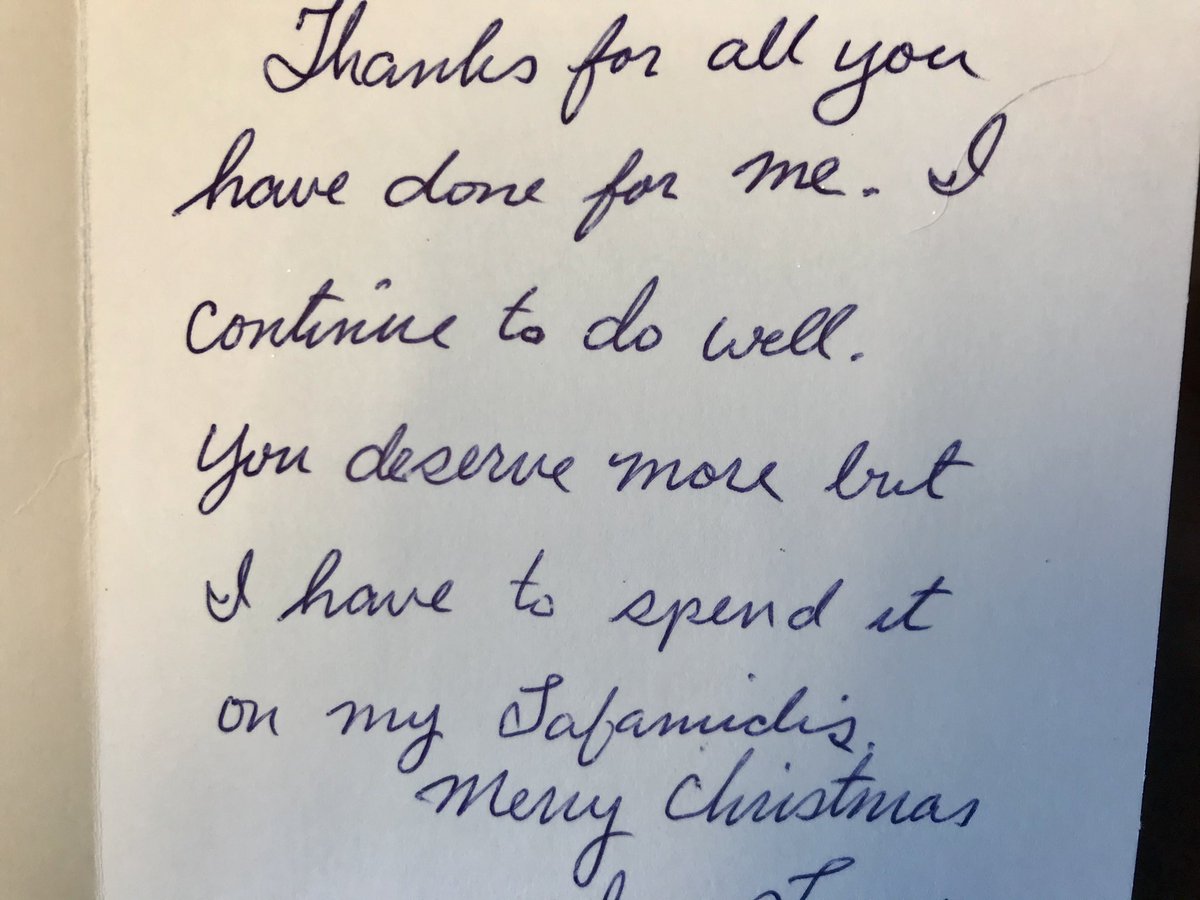 Thanks for all you
have done for me. I
continue to do well.
You deserve more but
I have to spend it
on my Tafamidis.
Merry Christmas